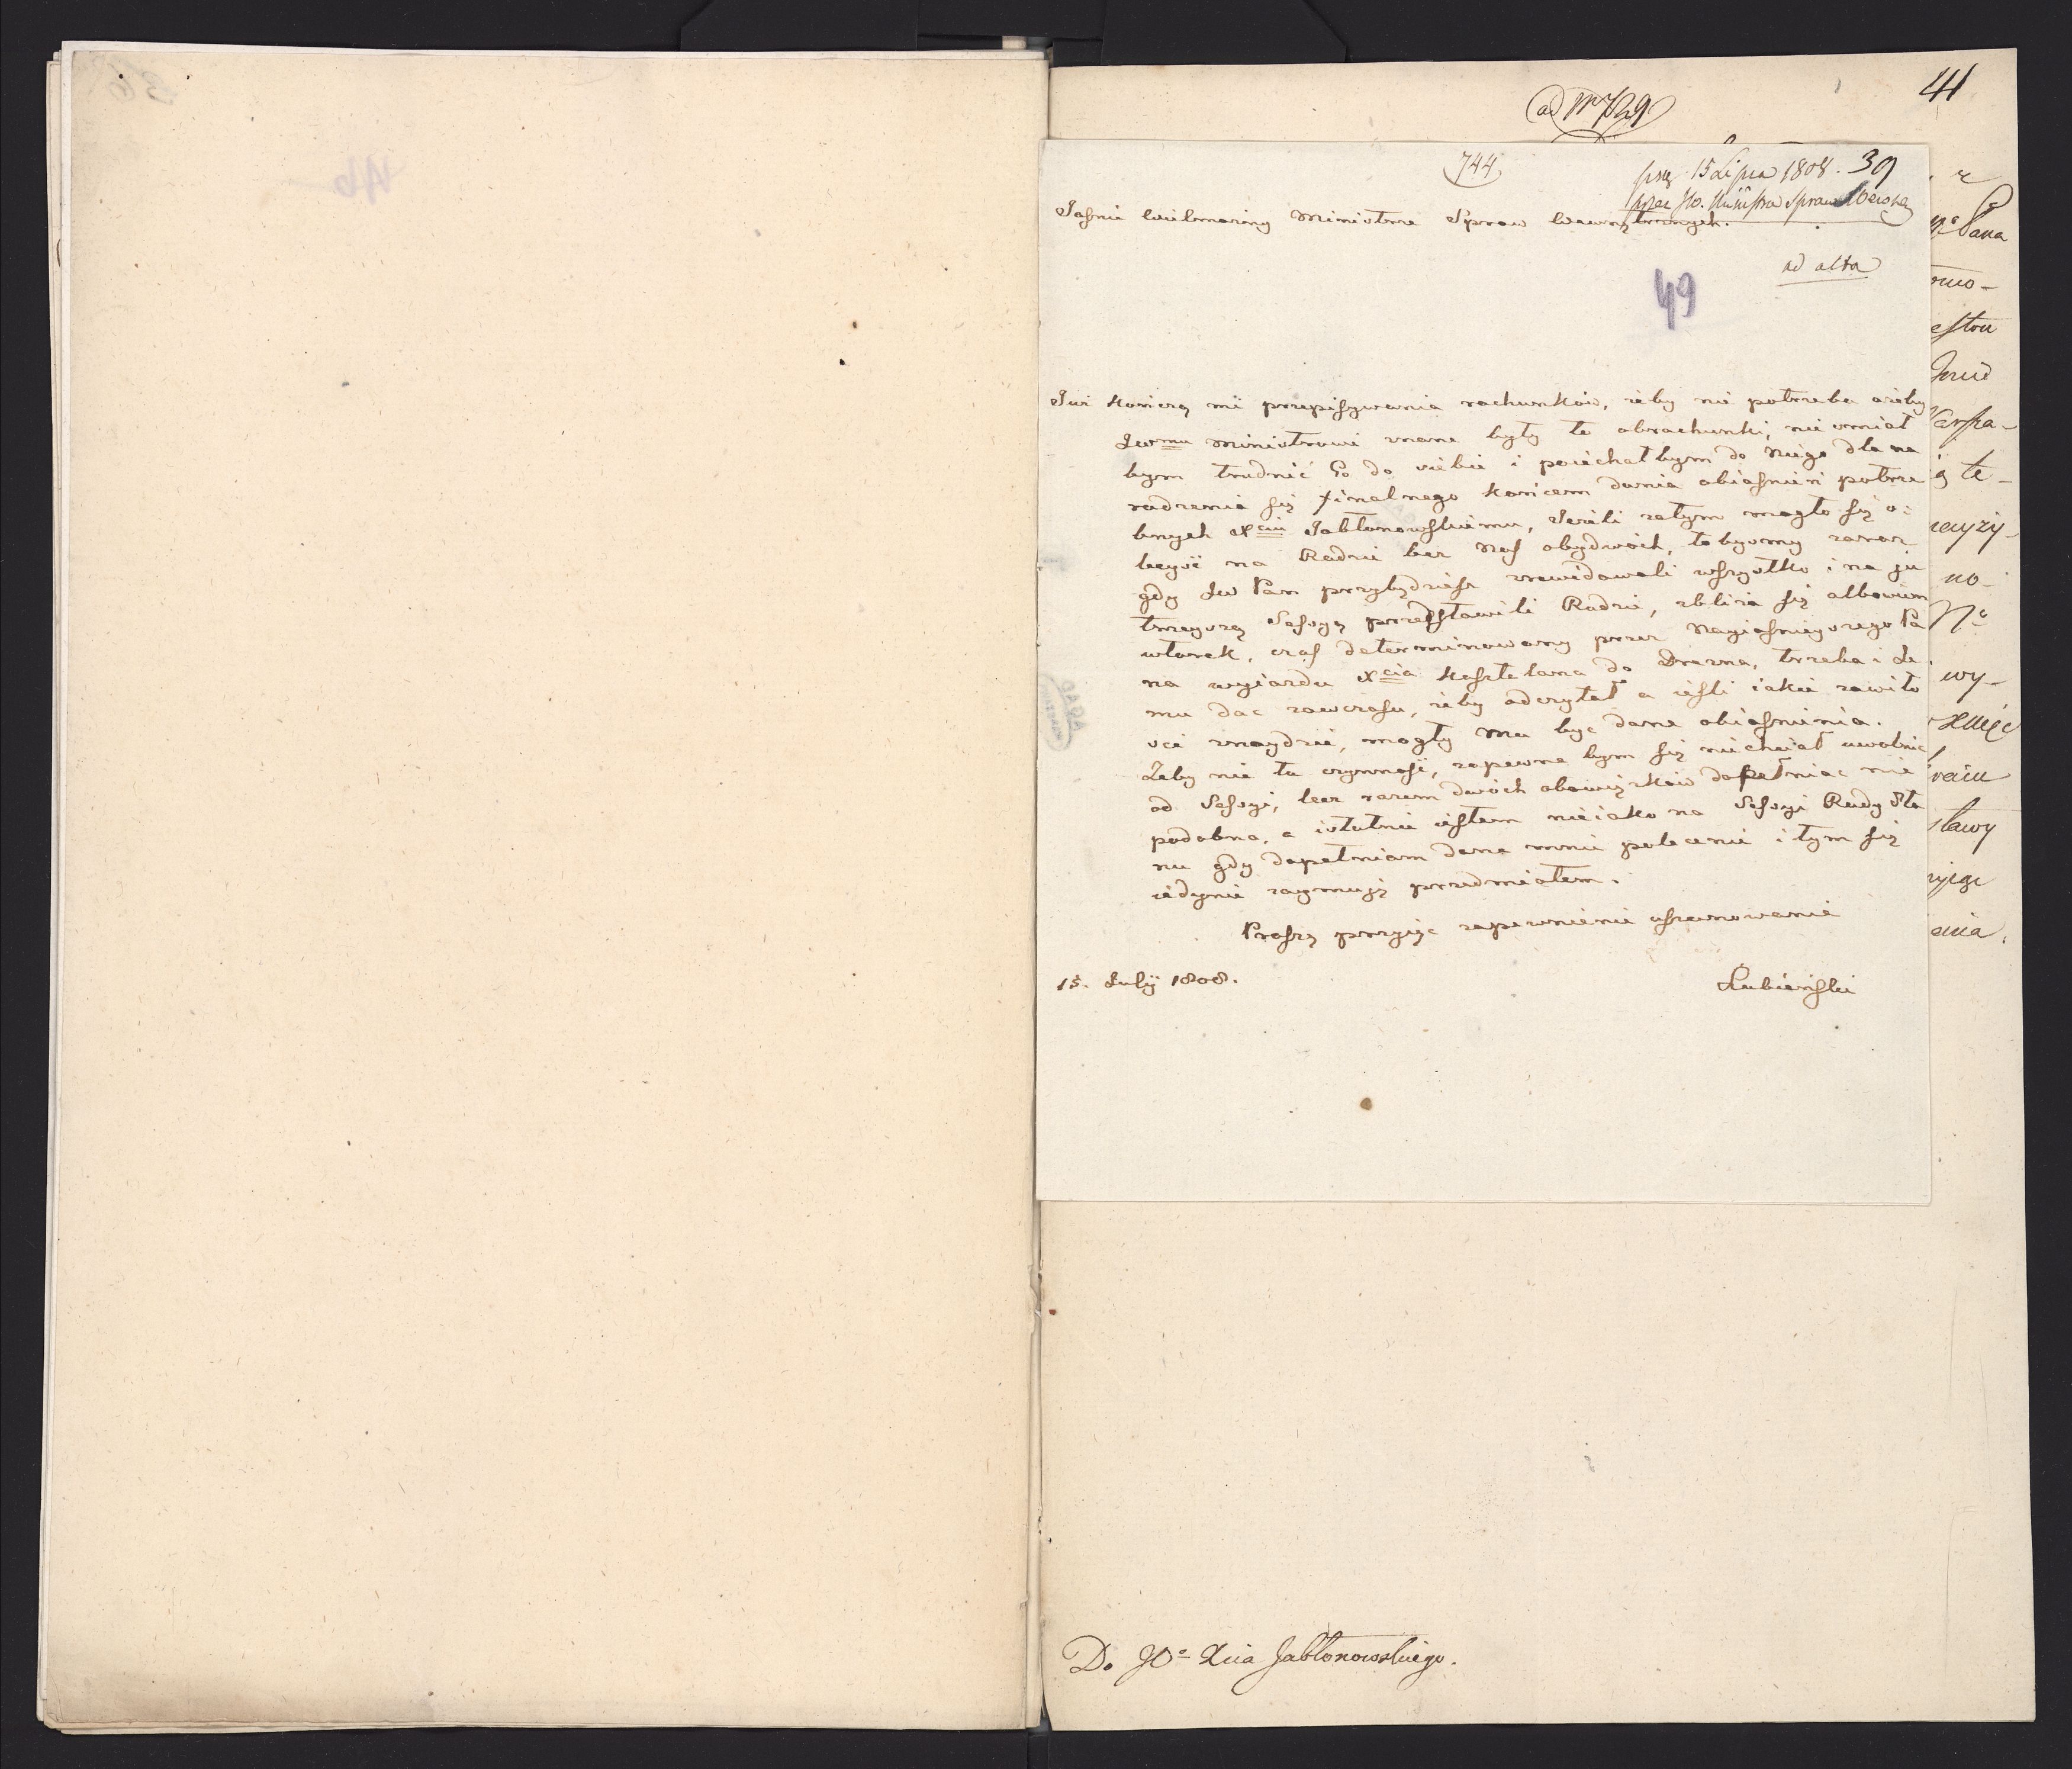 41
ad Nr 729
744
39
prez. 15 Lipca 1808.
przez JW. Ministra Spraw Wewn.
Jaśnie Wielmożny Ministrze Spraw Wewnętrznych.
ad acta
49
Już kończą mi przepisywania rachunków, żeby nie potrzeba ażeby
JWmu Ministrowi znane były te obrachunki, nie śmiał
bym trudnić Go do siebie i poiechałbym do Niego dla na
radzenia się finalnego końcem dania obiaśnień potrze
bnych Xciu Jabłonowskiemu, Jeżeli zatym mogło się o:
beyść na Radzie bez Nas obydwóch, to byśmy zaraz
gdy JW Pan przybędziesz zrewidowali wszystko i na ju
trzeyszą Sessyą przedstawili Radzie, zbliża się albowiem
wtorek, czas determinowany przez Nayiaśnieyszego Pa
na wyiazdu Xcia Kasztelana do Drezna, trzeba i Je
mu dac zawczasu, żeby odczytał a ieśli iakie zawiło
ści znaydzie, mogły Mu byc dane obiaśnienia.
Żeby nie ta czynność, zapewne bym się niechciał uwolnic
od Sessyi, lecz razem dwóch obowiązków dopełniac nie
podobna, a istotnie iestem nieiako na Sessyi Rady Sta
nu gdy dopełniam dane mnie polecenie i tym się
iedynie zaymuię przedmiotem.
Proszę przyiąc zapewnienie uszanowania
15. Julij 1808.
Łubieński
Pana
estou
Warsza-
te-
no-
Nº
wy-
stawy
ania.
Do JO= Xcia Jabłonowskiego.